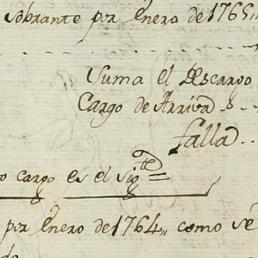 sobrante por Enero de 1765,,
Suma el Descargo
Cargo de Arriva
falla
o cargo es el sig.te
por Enero de 1764,, como se